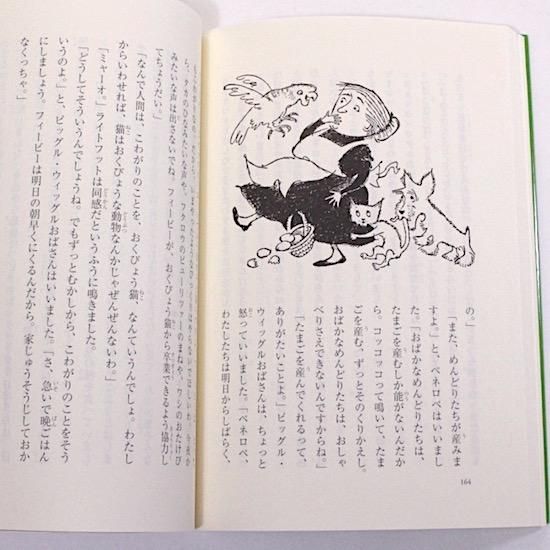 の。」
「また、めんどりたちが産みま
すよ。」と、ペネロペはいいまし
た。「おばかなめんどりたちは、
たまごを産むしか能がないんだか
ら。コッコッコって鳴いて、たま
ごを産む、ずっとそのくりかえし。
おばかなめんどりたちは、おしゃ
べりさえできないんですからね。」
「たまごを産んでくれるって、
ありがたいことよ。」ピッグル・
ウィッグルおばさんは、ちょっと
怒っていいました。「ペネロペ、
わたしたちは明日からしばらく、
164
ら、タカのひなみたいな声や、フクロウのピューリッツァーのまねや、ワシのおたけび
みたいな声は出さないでね。フィービーが、おくびょう猫から卒業できるよう協力し
てちょうだい。」
「なんで人間は、こわがりのことを、おくびょう猫、なんていうんでしょ。わたし
からいわせれば、猫はおくびょうな動物なんかじゃぜんぜんないわ。」
「ミャーオ。」ライトフットは同感だというふうに鳴きました。
「どうしてそういうんでしょうね。でもずっとむかしから、こわがりのことをそう
いうのよ。」と、ピッグル・ウィッグルおばさんはいいました。「さ、急いで晩ごはん
にしましょう。フィービーは明日の朝早くにくるんだから。家じゅうそうじしておか
なくっちゃ。」